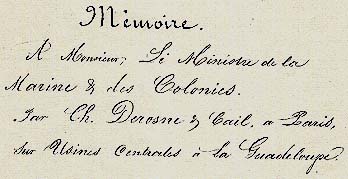 Mémoire.
A Monsieur, Le Ministre de la
Marine & des Colonies.
Par Ch. Derosne & Cail, a Paris,
sur Usines Centrales à la Guadeloupe.